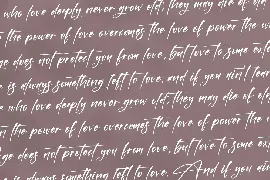 who love deeply never grow old; they may die of old
the power of love overcomes the love of power the w
ge does not protect you from love, but love to some exte
e is always something left to love, and if you ain't lear
e who love deeply never grow old; they may die of old
n the power of love overcomes the love of power the w
ge does not protect you from love, but love to some exte
is always something left to love. And if you ain